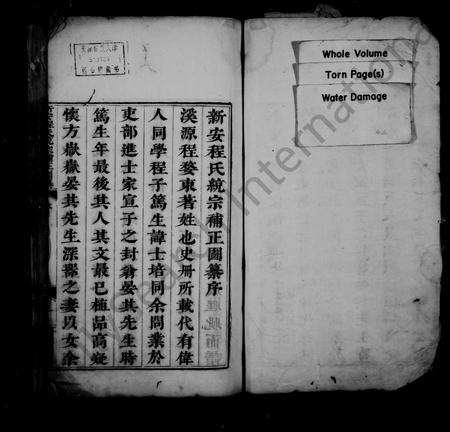 新安程氏統宗補正圖纂序
溪源程婺東著姓也史冊所載代有偉
人同學程子篤生諱士培同余問業於
吏部進士家宣子之封翁晏其先生時
篤生年最後其人其文最已植品高凝
懷方嶽嶽晏其先生深器之妻以女余
Whole Volume
Torn Page(s)
Water Damage